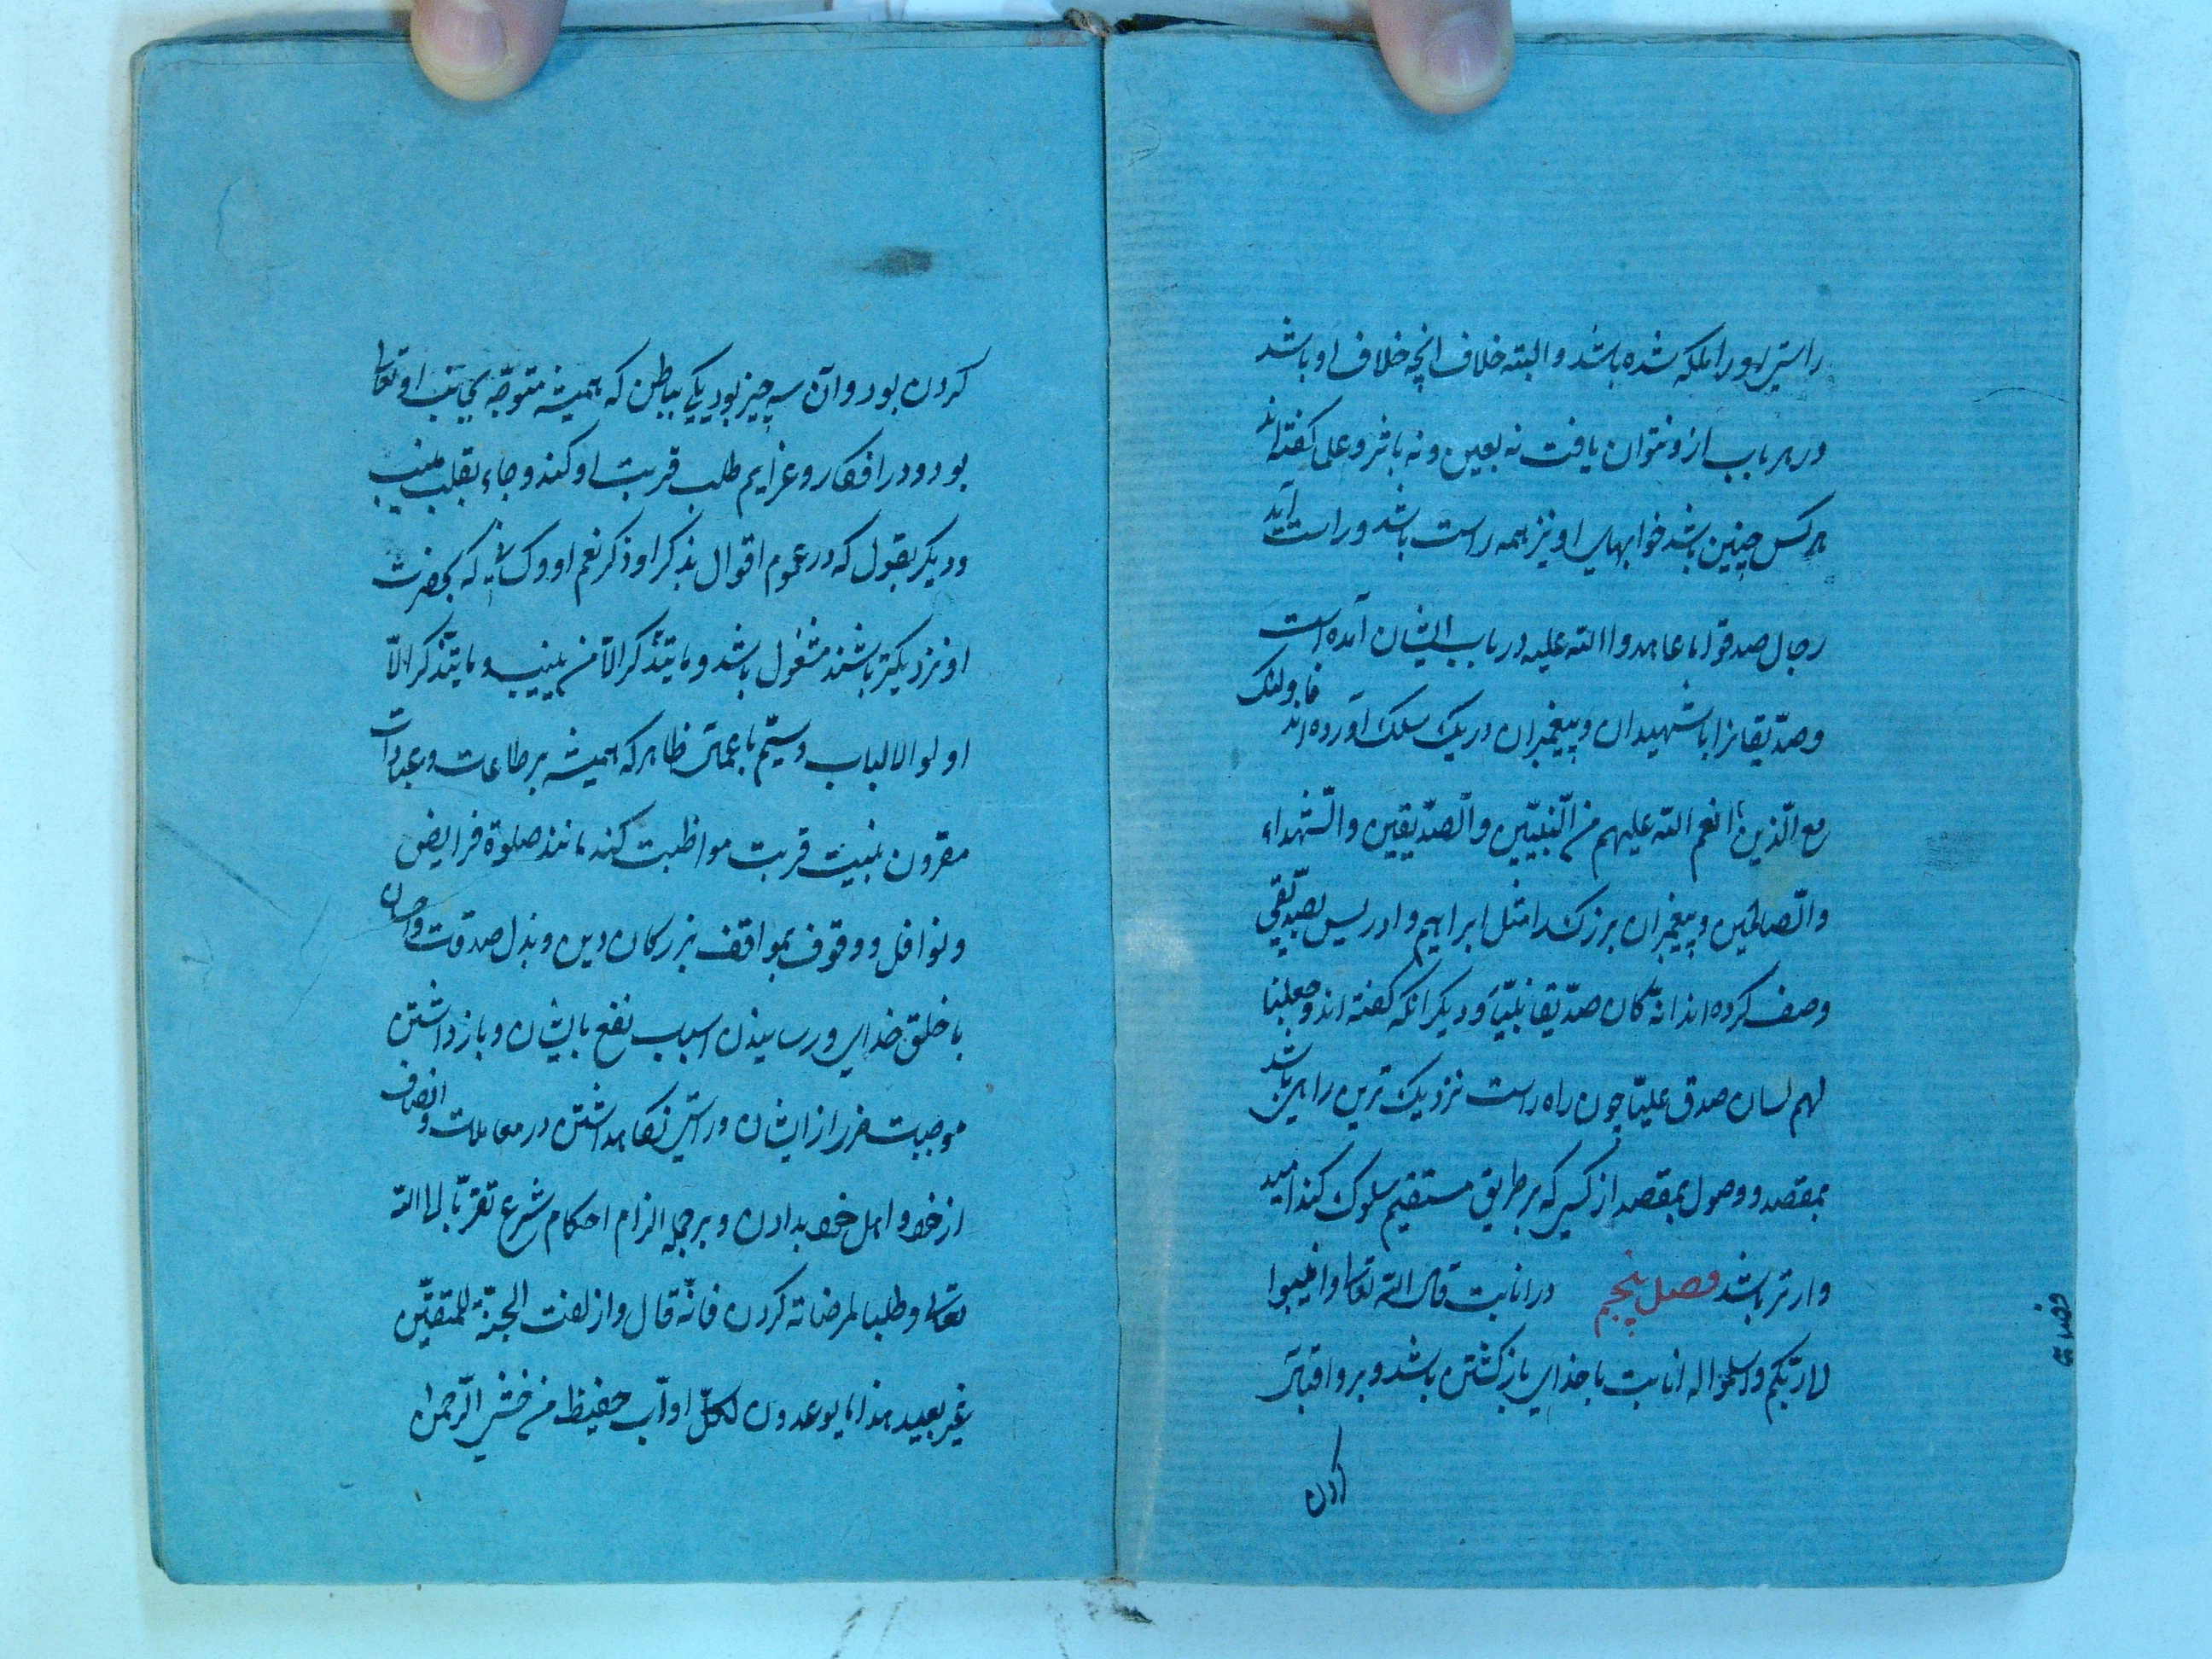 راستی او را ملکه شده باشد و البته خلاف انچه خلاف او باشد
در هر باب ازو نتوان یافت نه بعین و نه باثر و علی کفته اند
هر کس چنین باشد خوابهای او نیز همه راست باشد و راست آید
رجال صدقوا ما عاهدوا الله علیه در باب ایشان آمده است
و صدّیقانرا با شهیدان و پیغمبران در یک سلک آورده اند فاولئک
مع الّذین انعم الله علیهم من النّبیّین والصّدّیقین والشّهداء
والصّالحین و پیغمبران بزرک را مثل ابراهیم و ادریس بصدّیقی
وصف کرده اند انّه کان صدّیقا نبیّا و دیکر انکه کفته اند و جعلنا
لهم لسان صدق علیّا چون راه راست نزدیک ترین راهی باشد
بمقصد و وصول بمقصد از کسی که بر طریق مستقیم سلوک کند امید
وارتر باشد فصل پنجم در انابت قال الله تعالی و انیبوا
الی ربّکم و اسلموا له انابت با خدای بازکشتن باشد و برو اقبال
کردن
کردن بود و آن سه چیز بود یکی بباطن که همیشه متوجّه بجانب او تعالی
بود و در افکار و عزایم طلب قربت او کند و جاء بقلب منیب
و دیکر بقول که در عموم اقوال بذکر او و ذکر نعم او و کسانی که بحضرت
او نزدیکتر باشند مشغول باشد و ما یتذکر الّا من ینیب و ما یتذکر الّا
اولو الالباب و سیّم باعمال ظاهر که همیشه بر طاعات و عبادات
مقرون بنیت قربت مواظبت کند مانند صلوة فرایض
و نوافل و وقوف بمواقف بزرکان دین و بذل صدقات و احسان
با خلق خدای و رسانیدن اسباب نفع بایشان و باز داشتن
موجبات ضرر از ایشان و راستی نکاهداشتن در معاملات و انصاف
از خود و اهل خود بدادن و بر جمله الزام احکام شرع تقرّبا الی الله
تعالی و طلبا لمرضاته کردن فانّه قال و ازلفت الجنّة للمتقیّن
غیر بعید هذا ما یوعدون لکلّ اوّاب حفیظ من خشی الرّحمن